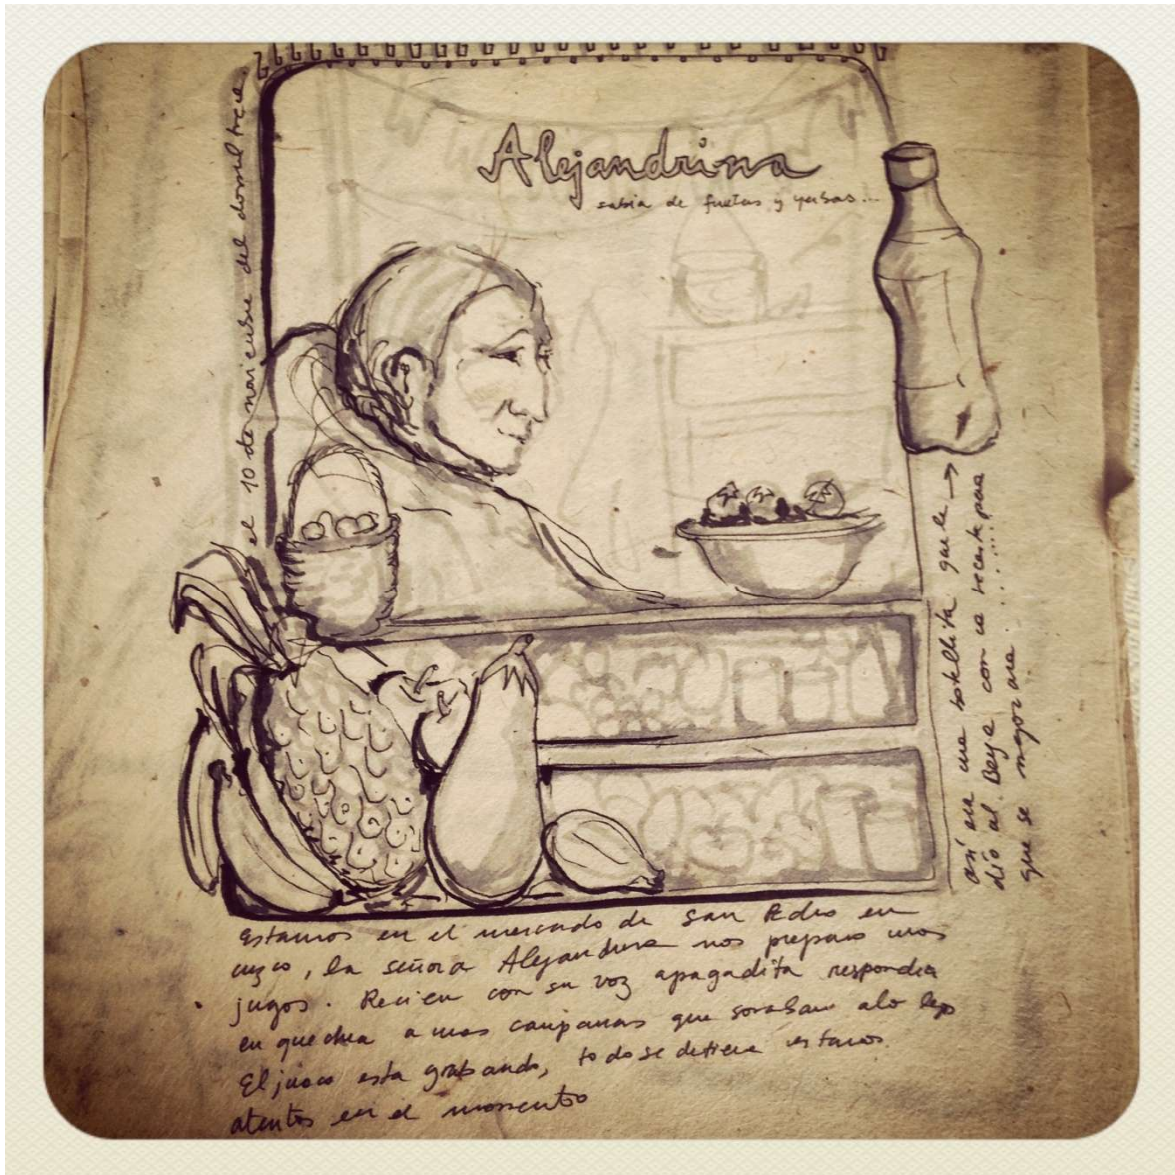 Alejandrina
sabia de frutas y yerbas...
el 10 de noviembre del dosmil trece.
así era una botellita que le →
dio al Beye con la receta para
que se mejorara.
Estamos en el mercado de San Pedro en
cuzco, la señora Alejandrina nos preparo unos
jugos. Recien con su voz apagadita respondia
en quechua a unas campanas que sonaban a lo lejos
El juaco esta grabando, todo se detiene estamos
atentos en el momento